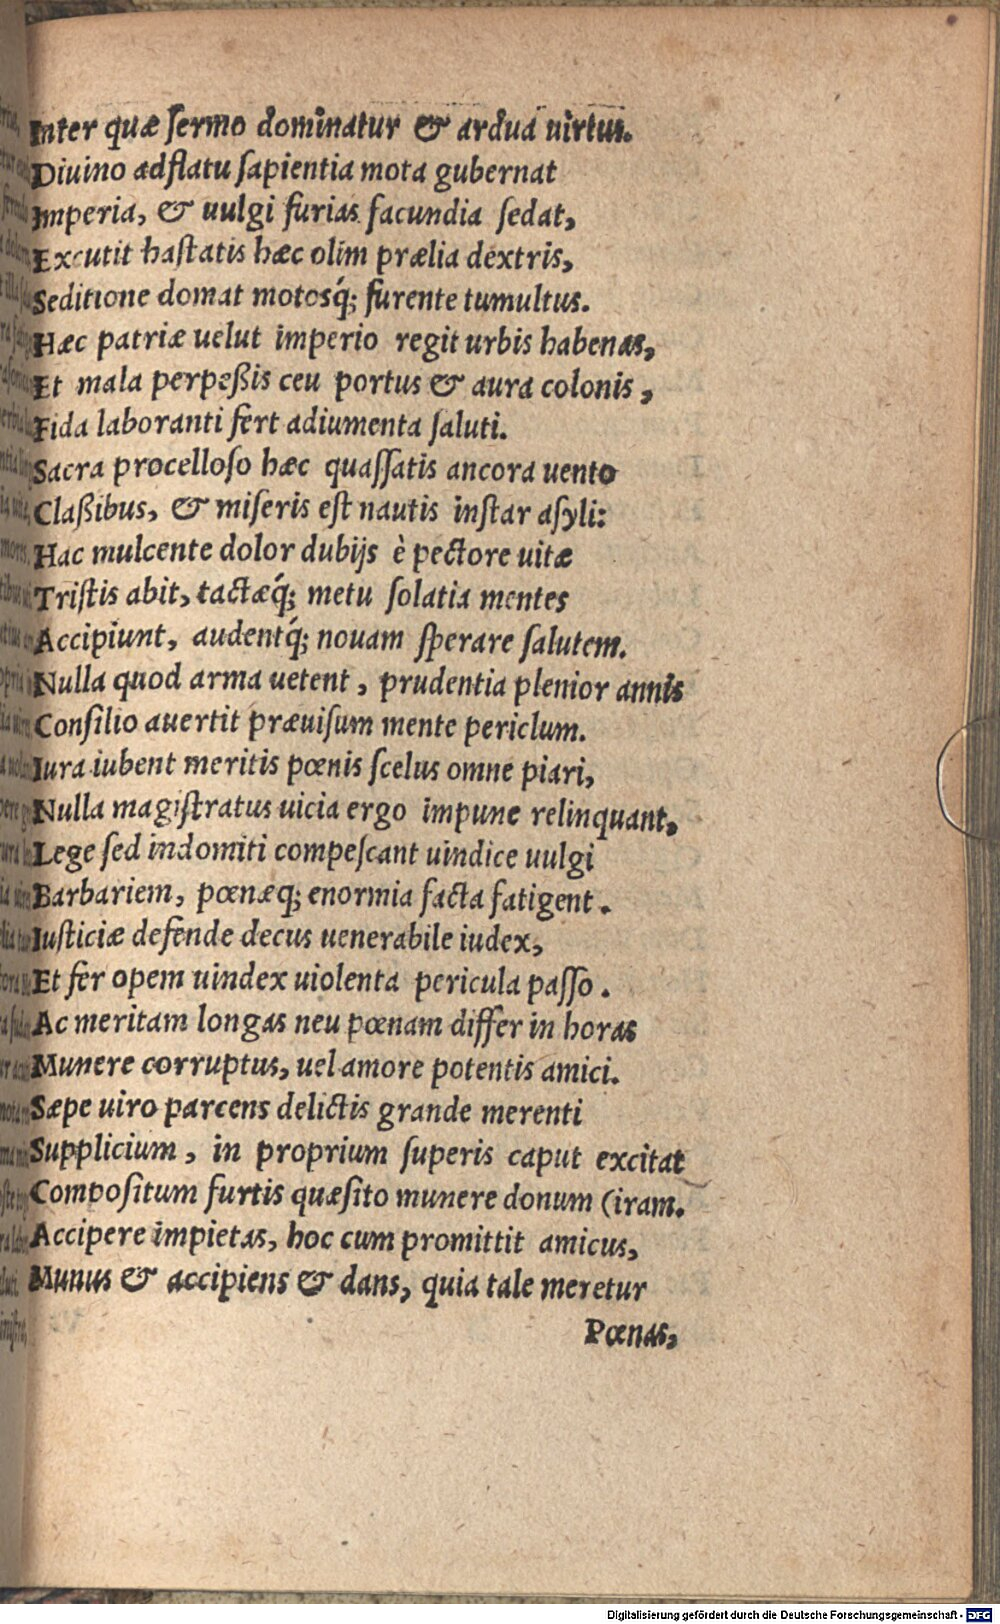 Inter quæ ſermo dominatur & ardua uirtus.
Diuino adflatu ſapientia mota gubernat
Imperia, & uulgi furias facundia ſedat,
Excutit haſtatis hæc olim prælia dextris,
Seditione domat motosq́; furente tumultus.
Hæc patriæ uelut imperio regit urbis habenas,
Et mala perpeßis ceu portus & aura colonis,
Fida laboranti fert adiumenta ſaluti.
Sacra procelloſo hæc quaſſatis ancora uento
Claßibus, & miſeris eſt nautis inſtar aſyli:
Hac mulcente dolor dubijs è pectore uitæ
Triſtis abit, tactæq́; metu ſolatia mentes
Accipiunt, audentq́; nouam ſperare ſalutem.
Nulla quod arma uetent, prudentia plenior annis
Conſilio auertit præuiſum mente periclum.
Iura iubent meritis pœnis ſcelus omne piari,
Nulla magiſtratus uicia ergo impune relinquant,
Lege ſed indomiti compeſcant uindice uulgi
Barbariem, pœnæq; enormia facta fatigent.
Iuſticiæ defende decus uenerabile iudex,
Et fer opem uindex uiolenta pericula paſſo.
Ac meritam longas neu pœnam differ in horas
Munere corruptus, uel amore potentis amici.
Sæpe uiro parcens delictis grande merenti
Supplicium, in proprium ſuperis caput excitat
Compoſitum furtis quæſito munere donum (iram.
Accipere impietas, hoc cum promittit amicus,
Munus & accipiens & dans, quia tale meretur
Pœnas,
Digitalisierung gefördert durch die Deutsche Forschungsgemeinschaft - DFG